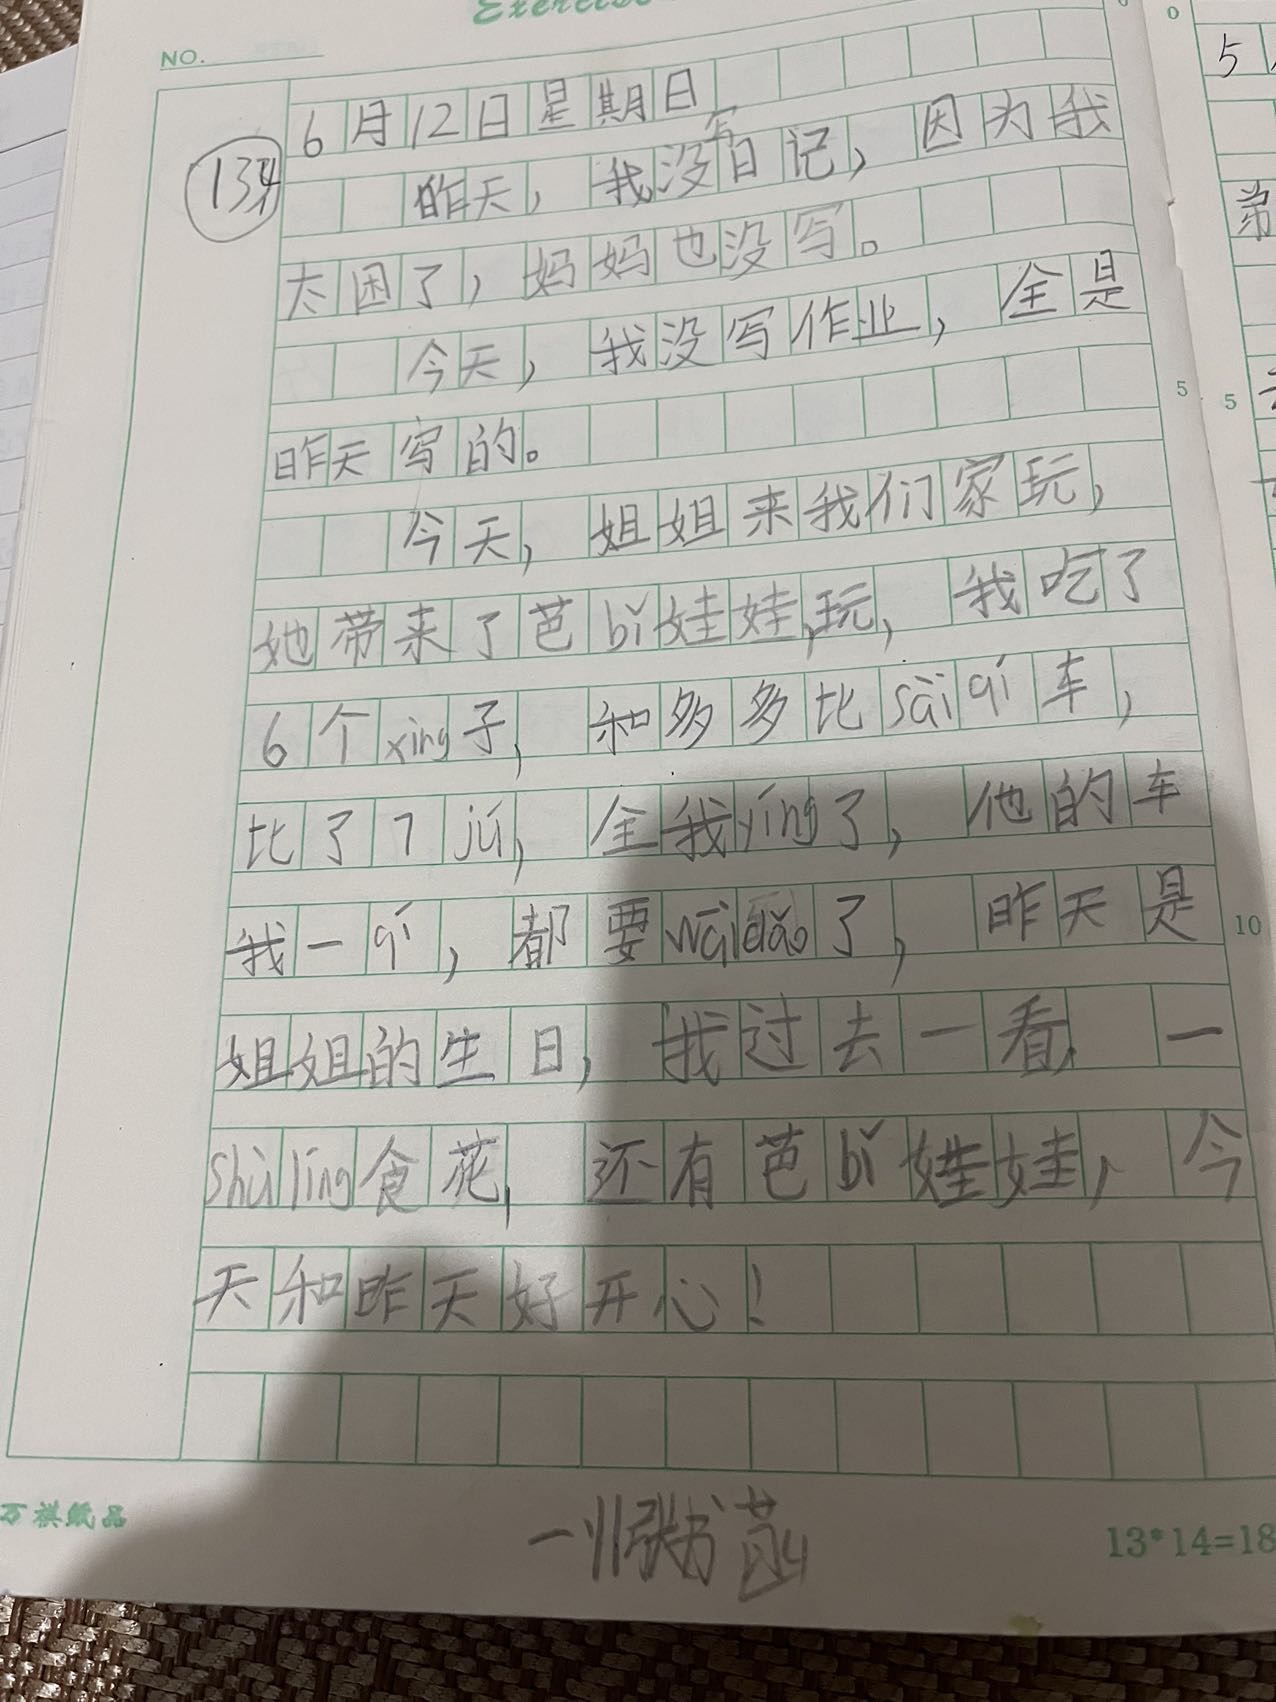 Exercise
NO.
6月12日星期日
134
昨天，我没写日记，因为我
太困了，妈妈也没写。
今天，我没写作业，全是
昨天写的。
今天，姐姐来我们家玩，
她带来了芭bǐ娃娃，玩，我吃了
6个xìng子，和多多比sàiqí车，
比了7jú，全我yíng了，他的车
我一qí，都要wāidǎo了，昨天是
姐姐的生日，我过去一看，一
shùlíng食花，还有芭bǐ娃娃，今
天和昨天好开心！
5
10
0
0
5
5
第
万祺纸品
13*14=18